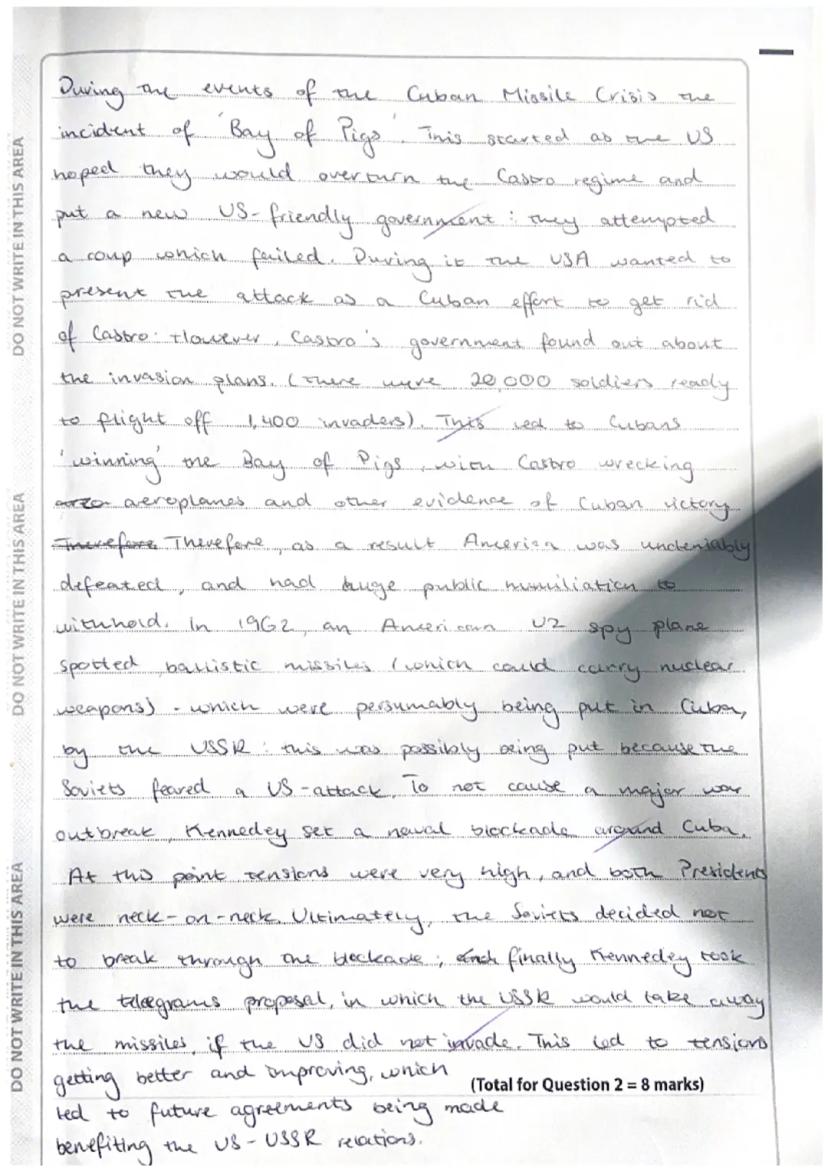 During the events of the Cuban Missile Crisis the
incident of 'Bay of Pigs'. This started as the US
hoped they would overturn the Castro regime and
put a new US-friendly government : they attempted
a coup which failed. During it the USA wanted to
present the attack as a Cuban effort to get rid
of Castro. However, Castro's government found out about
the invasion plans. (There were 20,000 soldiers ready
to flight off 1,400 invaders). This led to Cubans
'winning' the Bay of Pigs, with Castro wrecking
aeroplanes and other evidence of Cuban victory
Therefore Therefore, as a result America was undeniably
defeated, and had huge public humiliation to
withhold. In 1962, an American U2 spy plane
spotted ballistic missiles (which could carry nuclear
weapons) - which were persumably being put in Cuba,
by the USSR : this was possibly being put because the
Soviets feared a US-attack. To not cause a major war
outbreak, Kennedey set a naval blockade around Cuba.
At this point tensions were very high, and both Presidents
were neck-on-neck. Ultimately, the Soviets decided not
to break through the blockade ; finally Kennedey took
the telegrams proposal, in which the USSR would take away
the missiles, if the US did not invade. This led to tensions
getting better and improving, which
(Total for Question 2 = 8 marks)
led to future agreements being made
benefiting the US-USSR relations.
DO NOT WRITE IN THIS AREA
DO NOT WRITE IN THIS AREA
DO NOT WRITE IN THIS AREA